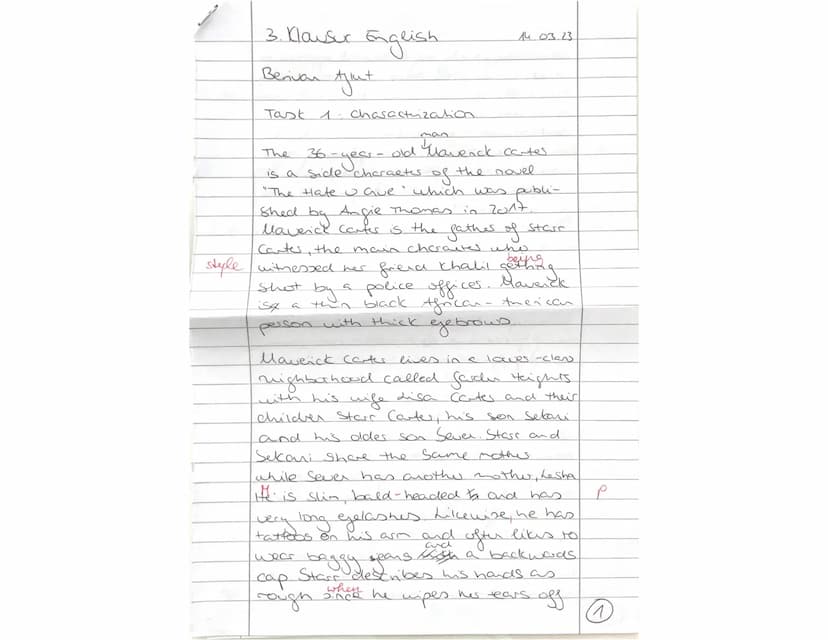 3. Klausur English 14.03.23
Berivan
Task 1: Characterization
man
The 36-year-old Maverick Carter
is a side character of the novel
"The Hate U Give" which was publi-
shed by Angie Thomas in 2017.
Maverick Carter is the father of Starr
Carter, the main character who
being
style witnessed her friend Khalil getting
shot by a police officer. Maverick
is a thin black African-American
person with thick eyebrows.
Maverick Carter lives in a lower-class
neighborhood called Garden Heights
with his wife Lisa Carter and their
children Starr Carter, his son Sekani
and his older son Seven. Starr and
Sekani share the same mother
while Seven has another mother, Iesha.
He is slim, bald-headed and has P
very long eyelashes. Likewise, he has
tattoos on his arm and often likes to
and
wear baggy jeans a backwards
cap. Starr describes his hands as
when
rough since he wipes her tears off
1